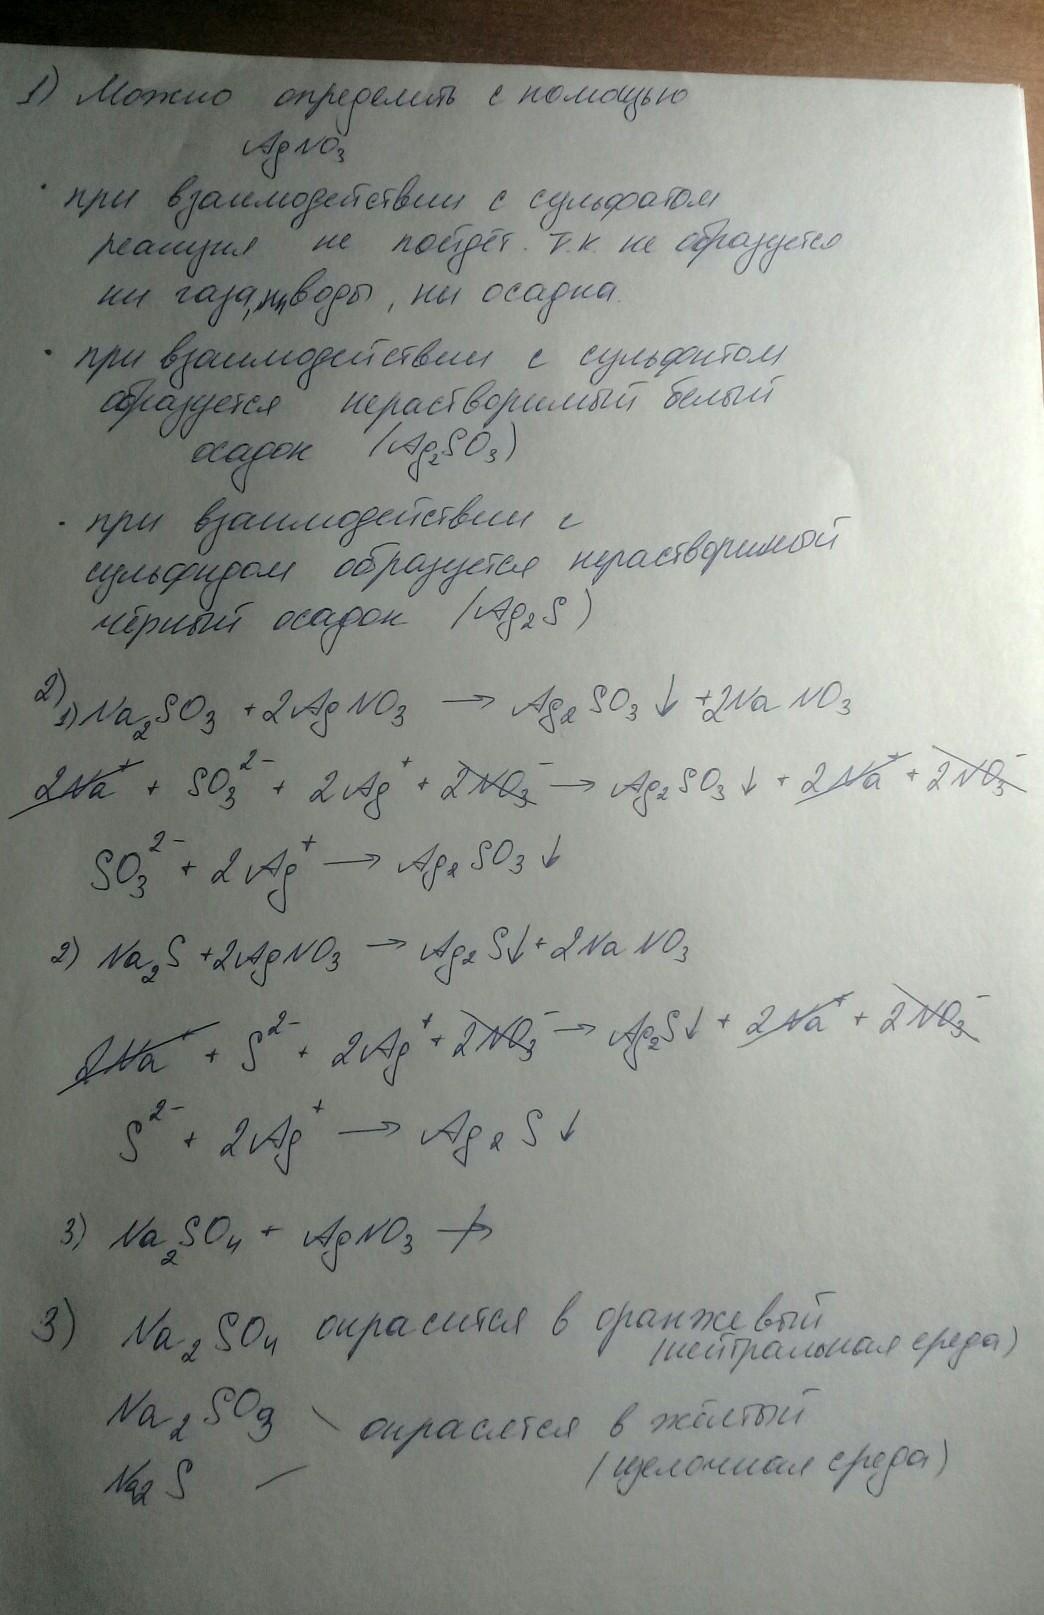 1) Можно определить с помощью
AgNO₃
· при взаимодействии с сульфатом
реакция не пойдёт. т.к. не образуется
ни газа, ни воды, ни осадка.
· при взаимодействии с сульфитом
образуется нерастворимый белый
осадок (Ag₂SO₃)
· при взаимодействии с
сульфидом образуется нерастворимый
чёрный осадок (Ag₂S)
2)
1) Na₂SO₃ + 2AgNO₃ → Ag₂SO₃↓ + 2NaNO₃
2Na⁺ + SO₃²⁻ + 2Ag⁺ + 2NO₃⁻ → Ag₂SO₃↓ + 2Na⁺ + 2NO₃⁻
SO₃²⁻ + 2Ag⁺ → Ag₂SO₃↓
2) Na₂S + 2AgNO₃ → Ag₂S↓ + 2NaNO₃
2Na⁺ + S²⁻ + 2Ag⁺ + 2NO₃⁻ → Ag₂S↓ + 2Na⁺ + 2NO₃⁻
S²⁻ + 2Ag⁺ → Ag₂S↓
3) Na₂SO₄ + AgNO₃ ↛
3) Na₂SO₄ окрасится в оранжевый
(нейтральная среда)
Na₂SO₃ \ окрасятся в жёлтый
(щелочная среда)
Na₂S /